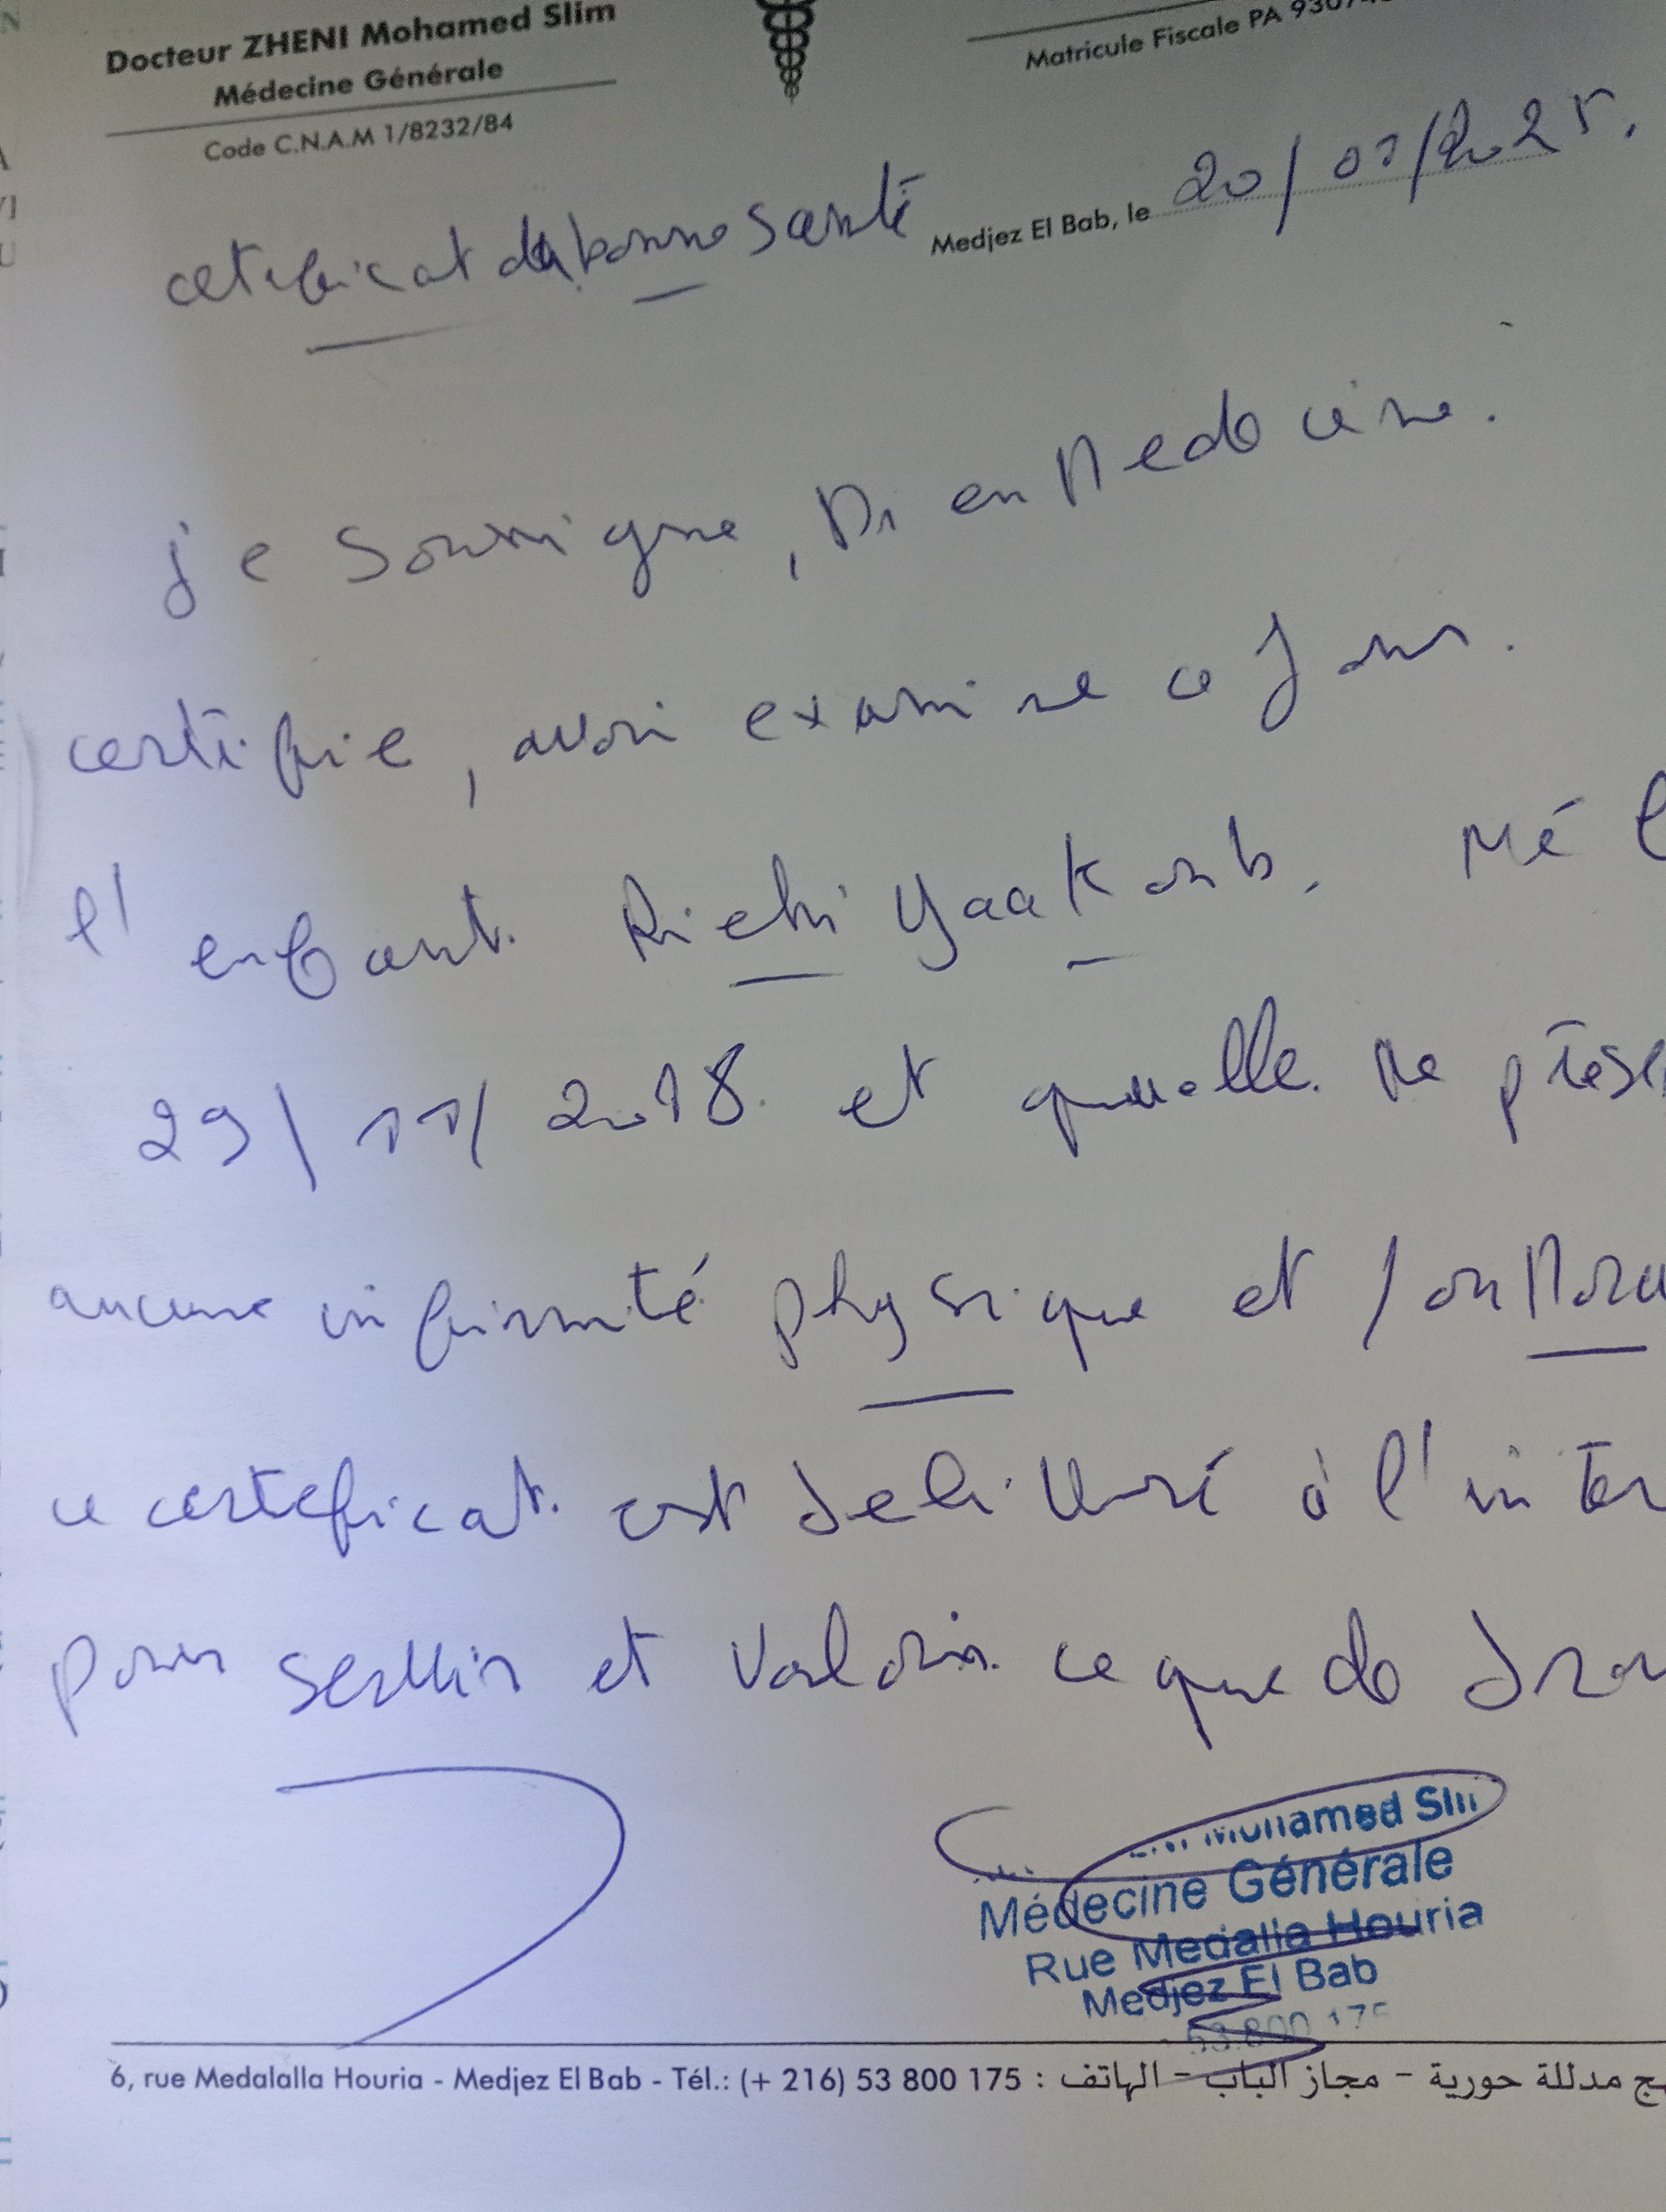 Docteur ZHENI Mohamed Slim
Médecine Générale
Code C.N.A.M 1/8232/84
Matricule Fiscale PA
Medjez El Bab, le 20/01/2025.
cetificat de bonne santé
je soussigne, Dr en Medecine.
certifie, avoir examine ce Jour.
l'enfant. Riahi Yaakoub. Né l
29/11/2018. et quelle. Ne prése
aucune infirmité physique et / ou Mora
ce certeficat. est delivré à l'inter
pour servir et valoir. ce que de droi
Mohamed
Médecine Générale
Rue Medalla Houria
Medjez El Bab
53.800 175
6, rue Medalalla Houria - Medjez El Bab - Tél.: (+ 216) 53 800 175 : نهج مدللة حورية - مجاز الباب - الهاتف